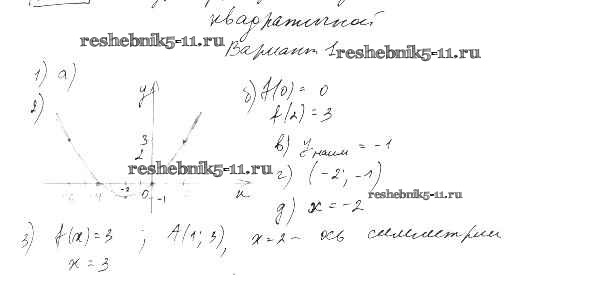 квадратичной
reshebnik5-11.ru
Вариант 1
reshebnik5-11.ru
1) а)
2)
y
3
2
-2 0
-1
x
б) f(0) = 0
f(2) = 3
в) y наим = -1
reshebnik5-11.ru
г) (-2; -1)
reshebnik5-11.ru
д) x = -2
3) f(x) = 3 ; A(1; 3), x = 2 - ось симметрии
x = 3